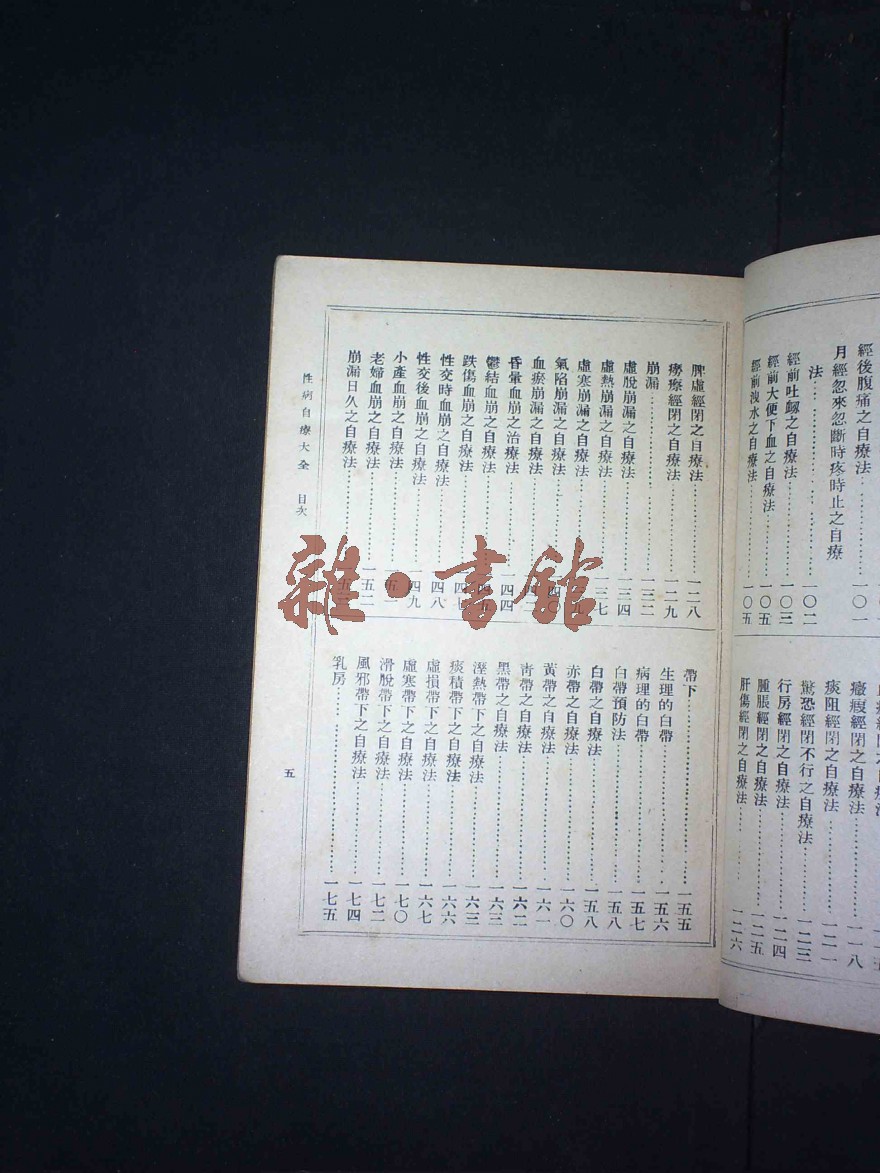 經後腹痛之自療法……一〇一
月經忽來忽斷時疼時止之自療
法……一〇二
經前吐衄之自療法……一〇三
經前大便下血之自療法……一〇五
經前洩水之自療法……一〇五
癥瘕經閉之自療法……一一八
痰阻經閉之自療法……一二一
驚恐經閉不行之自療法……一二三
行房經閉之自療法……一二四
腫脹經閉之自療法……一二五
肝傷經閉之自療法……一二六
脾虛經閉之自療法……一二八
癆瘵經閉之自療法……一二九
崩漏……一三二
虛脫崩漏之自療法……一三四
虛熱崩漏之自療法……一三七
虛寒崩漏之自療法
氣陷崩漏之自療法
血瘀崩漏之自療法
昏暈血崩之治療法……一四四
鬱結血崩之自療法
跌傷血崩之自療法
性交時血崩之自療法……一四八
性交後血崩之自療法……一四九
小產血崩之自療法……一五一
老婦血崩之自療法……一五二
崩漏日久之自療法
帶下……一五五
生理的白帶……一五六
病理的白帶……一五七
白帶預防法……一五八
白帶之自療法……一五八
赤帶之自療法……一六〇
黃帶之自療法……一六一
青帶之自療法……一六二
黑帶之自療法……一六三
溼熱帶下之自療法……一六三
痰積帶下之自療法……一六六
虛損帶下之自療法……一六七
虛寒帶下之自療法……一七〇
滑脫帶下之自療法……一七二
風邪帶下之自療法……一七四
乳房……一七五
性病自療大全 目次
五
雜·書館